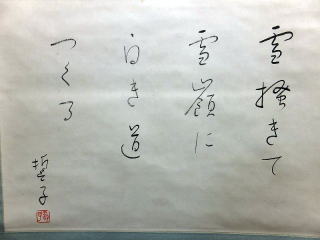 雪掻きて
雪嶺に
白き道
つくる
哲子